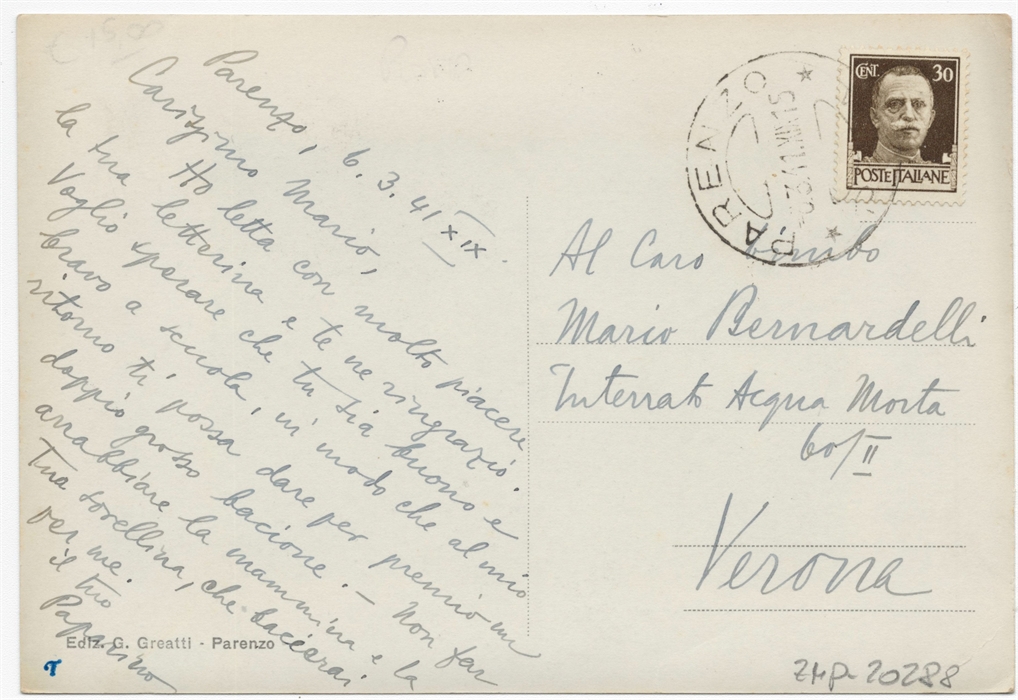 Parenzo, 6.3.41 XIX.
Carissimo Mario,
Ho letta con molto piacere
la tua letterina e te ne ringrazio.
Voglio sperare che tu sia buono e
bravo a scuola, in modo che al mio
ritorno ti possa dare per premio un
doppio grosso bacione. – Non far
arrabbiare la mammina e la
tua sorellina, che bacerai
per me.
il tuo
Paparino
Ediz. G. Greatti - Parenzo
PARENZO
CENT. 30
POSTE ITALIANE
Al Caro bimbo
Mario Bernardelli
Interrato Acqua Morta
60/II
Verona
ZMP-20288